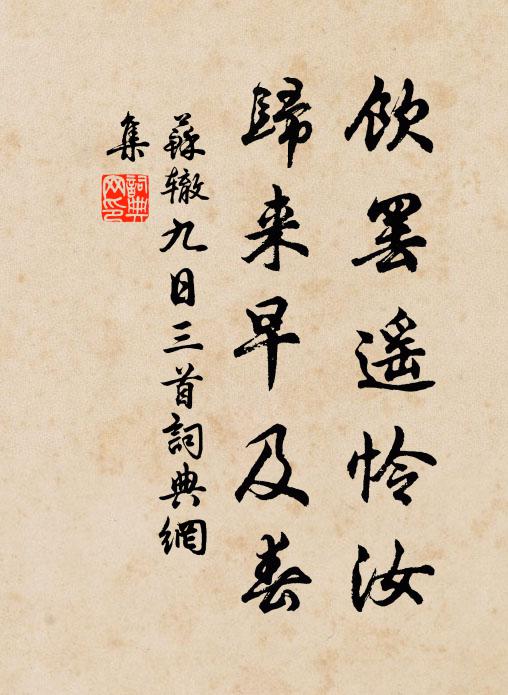 飲罢遥怜汝
歸来早及春
蘇辙九日三首詞典網
集
詞典
网印